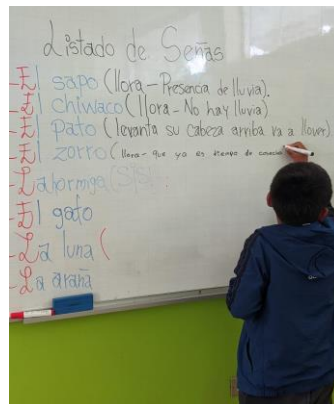 Listado de Señas
- El sapo (llora - Presencia de lluvia).
- El chiwaco (llora - No hay lluvia)
- El Pato (levanta su cabeza arriba va a llover)
- El zorro (llora - que ya es tiempo de cosecha
- La hormiga (S|S|
- El gato
- La luna (
- La araña